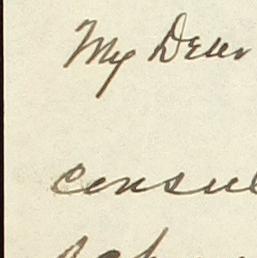 My Dear
consul